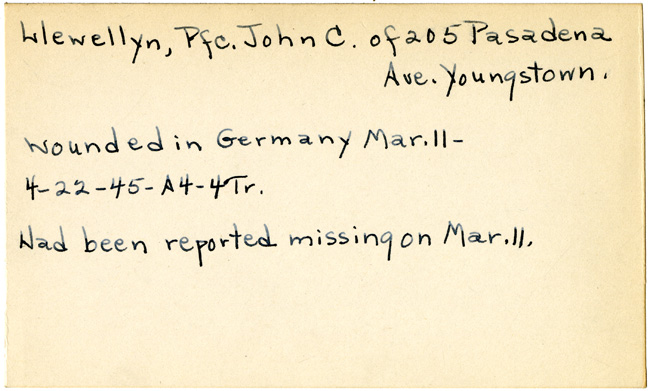 Llewellyn, Pfc. John C. of 205 Pasadena
Ave. Youngstown.
Wounded in Germany Mar. 11-
4-22-45-A4-4Tr.
Had been reported missing on Mar. 11.